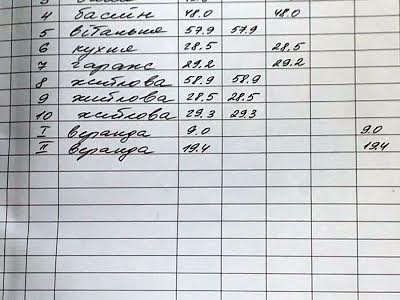 4 басейн 48.0 48.0
5 вітальня 57.9 57.9
6 кухня 28.5 28.5
7 гараж 29.2 29.2
8 житлова 58.9 58.9
9 житлова 28.5 28.5
10 житлова 29.3 29.3
I веранда 9.0 9.0
II веранда 19.4 19.4